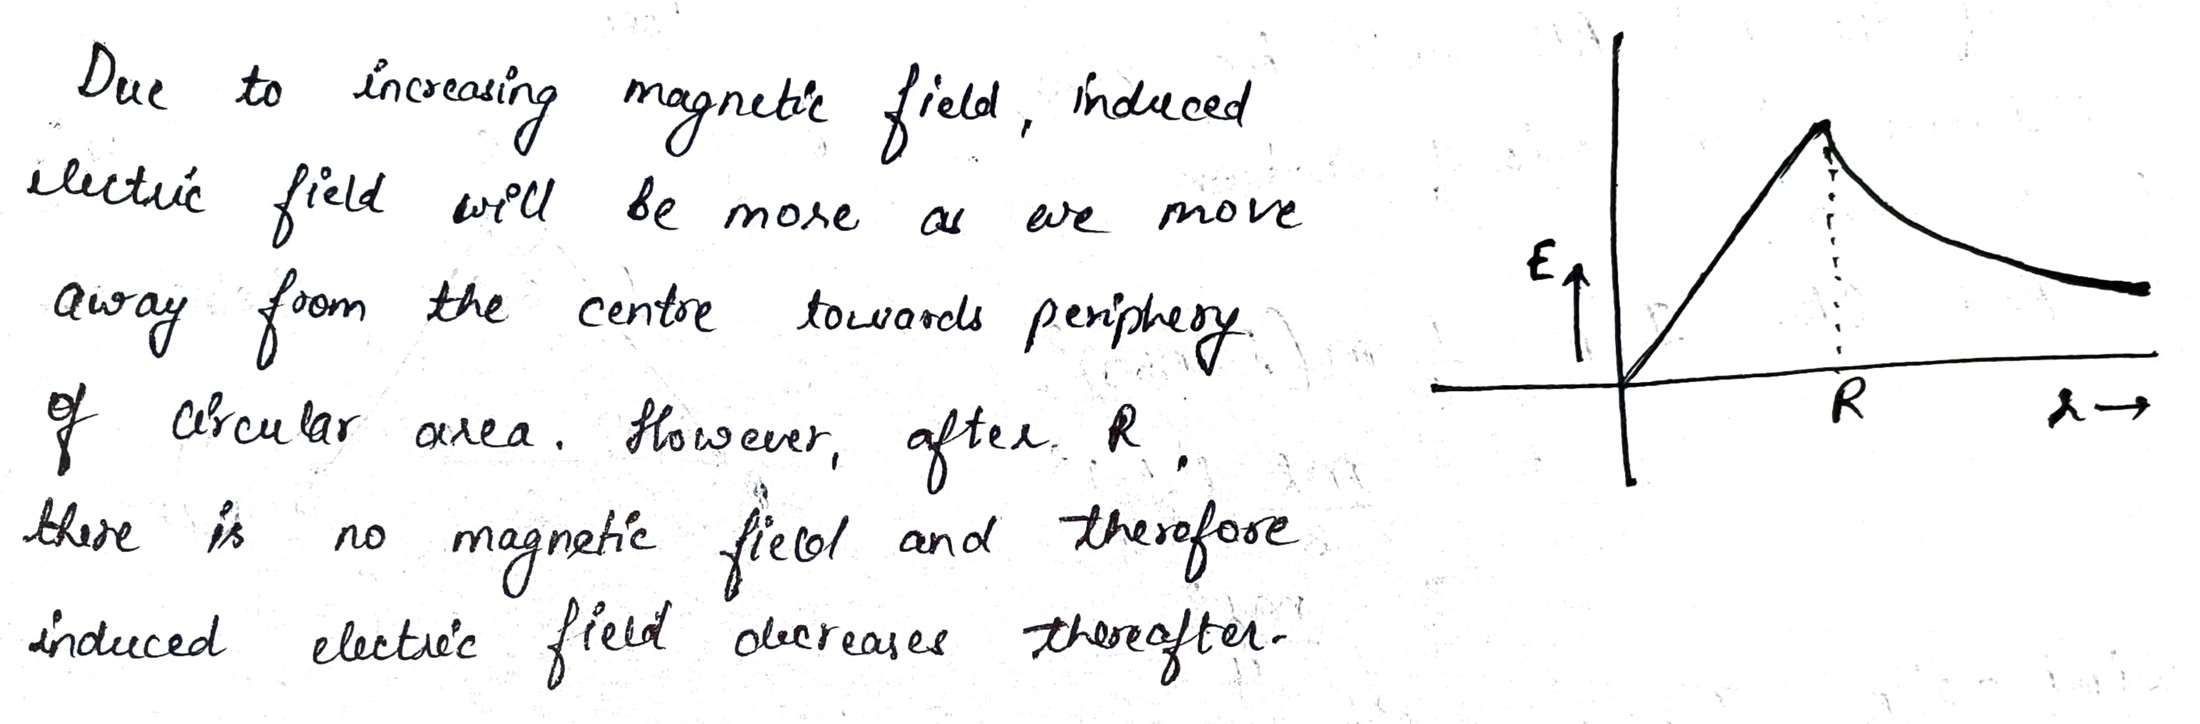 Due to increasing magnetic field, induced
electric field will be more as we move
away from the centre towards periphery.
of circular area. However, after R,
there is no magnetic field and therefore
induced electric field decreases thereafter.
E
R
r